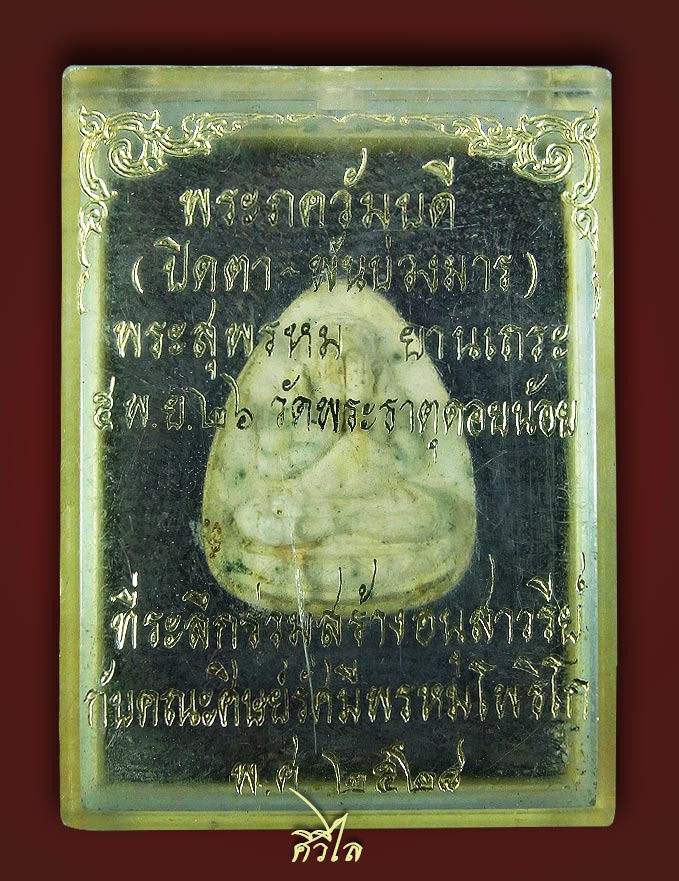 พระภควัมบดี
(ปิดตา ~ พันบ่วงมาร)
พระสุพรหม ยานเถระ
๕ พ.ย.๒๖ วัดพระธาตุดอยน้อย
ที่ระลึกร่วมสร้างอนุสาวรีย์
กับคณะศิษย์รัศมีพรหมโพธิโก
พ.ศ ๒๕๒๘
ศิวิไล